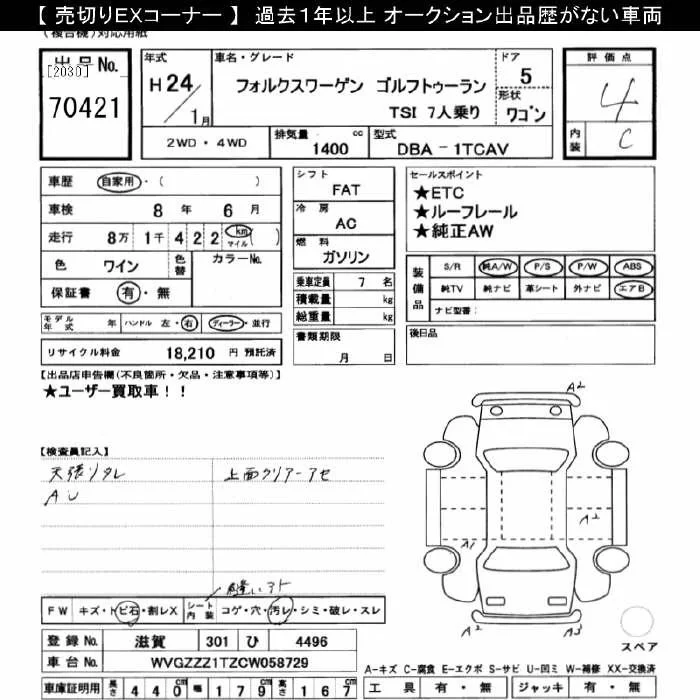 【 売切りEXコーナー 】 過去1年以上 オークション出品歴がない車両
(複合機)対応用紙
出品No.
[2030]
70421
年式
H24/1月
車名・グレード
フォルクスワーゲン ゴルフトゥーラン
TSI 7人乗り
ドア
5
形状
ワゴン
評価点
4
内装
C
2WD・4WD
排気量
1400 cc
型式
DBA - 1TCAV
車歴
自家用・( )
車検
8 年 6 月
走行
8万1千422 km マイル ( )
色
ワイン
色替
カラーNo.
保証書
有・無
シフト
FAT
冷房
AC
燃料
ガソリン
乗車定員 7 名
積載量 kg
総重量 kg
書類期限
月 日
セールスポイント
★ETC
★ルーフレール
★純正AW
装備品
S/R 純A/W P/S P/W ABS
純TV 純ナビ 革シート 外ナビ エアB
ナビ型番:
後日品
モデル年式 年 ハンドル 左・右 ディーラー・並行
リサイクル料金 18,210 円 預託済
【出品店申告欄(不良箇所・欠品・注意事項等)】
★ユーザー買取車!!
【検査員記入】
天張りタレ
上面クリアーアセ
AU
A2
A2
A1
A2
A2
A3
FW キズ・トビ石・割レX
シート内装 コゲ・穴・汚レ・シミ・破レ・スレ
登録No. 滋賀 301 ひ 4496
車台No. WVGZZZ1TZCW058729
車庫証明用 長さ 440 幅 179 高さ 167
スペア
A-キズ C-腐食 E-エクボ S-サビ U-凹ミ W-補修 XX-交換済
工具 有・無 ジャッキ 有・無